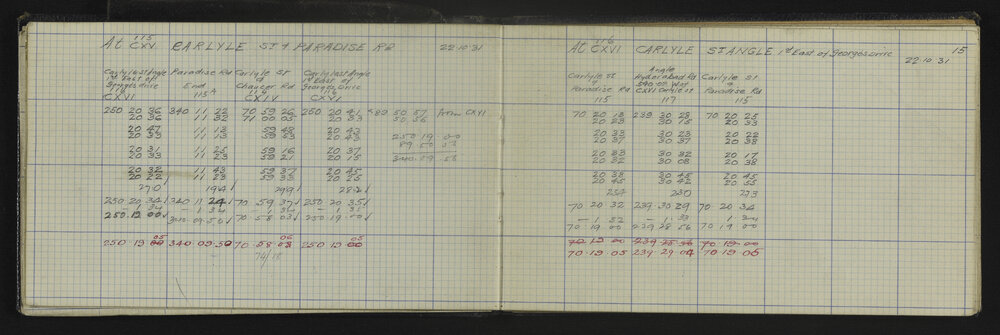 115
At CXV CARLYLE ST & PARADISE RD 22.10.31
Carlyle St Angle Paradise Rd Carlyle St Carlyle St Angle
1st East of End & 1st East of
Georges Drive 115A Chaucer Rd Georges Drive
116 114 116
CXVI CXIV CXVI
250 20 36 340 11 22 70 59 26 250 20 41 89 50 57 From CXVI
20 36 11 32 71 00 05 20 33 50 56
20 47 11 13 59 48 20 43
20 33 11 13 59 53 20 43 250 19 00
20 31 11 25 59 16 20 37
20 33 11 23 59 21 20 15 340.09.56
20 32 11 43 59 37 20 45
20 22 11 23 59 33 20 25
270 194 299 282
250 20 34 340 11 24 70 59 37 250 20 35
- 1 34 - 1 34 1 34 - 1 35
250.19 00 340.09.50 70.58 03 250.19.00
05 06 05
250.19 00 340.09.50 70.58.03 250.19 00
74/15
116
At CXVI CARLYLE ST ANGLE 1st East of Georges Drive 15
22 10 31
Carlyle St Angle Carlyle St
& Hyderabad Rd &
Paradise Rd CXVII Carlyle St Paradise Rd
115 117 115
70 20 18 239 30 28 70 20 25
20 23 30 15 20 33
20 33 30 23 20 22
20 37 30 37 20 38
20 33 30 32 20 17
20 32 30 08 20 38
20 38 30 45 20 45
20 45 30 42 20 55
254 230 273
70 20 32 239 30 29 70 20 34
- 1 32 - 1 33 1 34
70 19 00 239 28 56 70 19 00
70 19 00 239 28 56 70 19.00
70.19 05 239.29 04 70.19.05